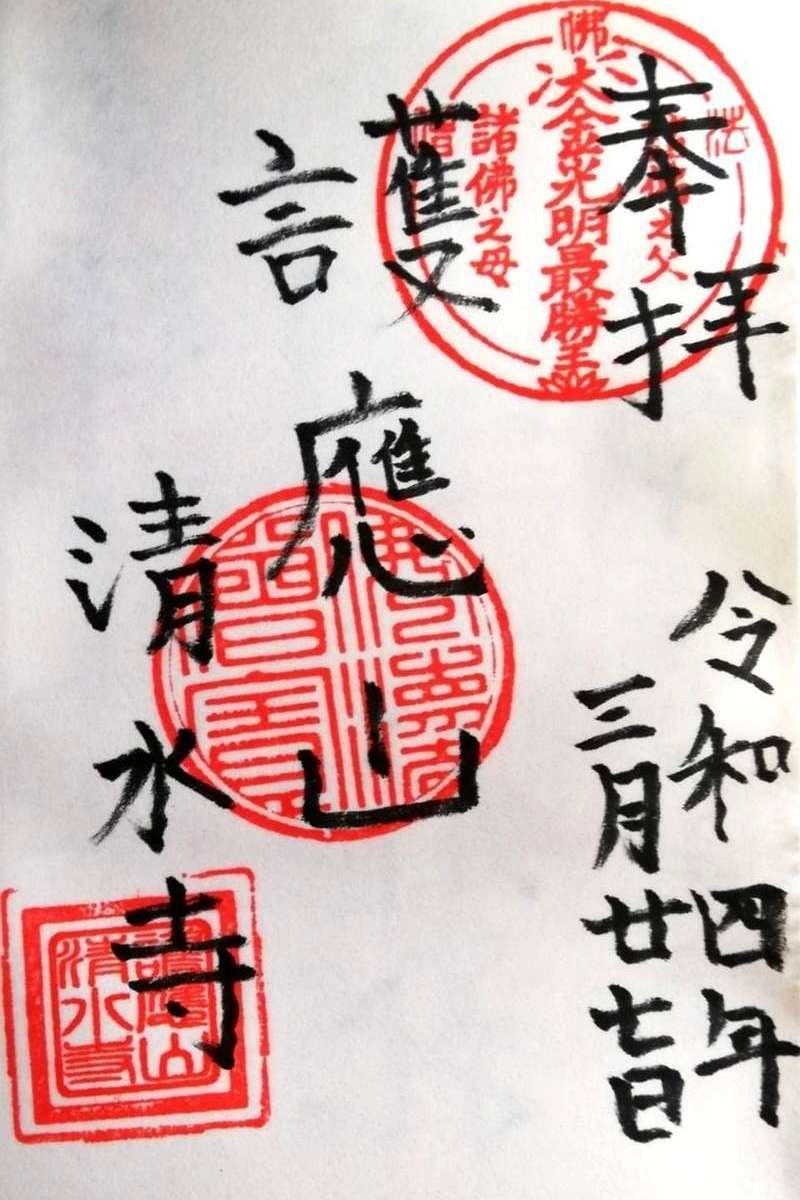 奉拝
令和四年
三月廿七日
護應山
清水寺
佛
法
僧
大金光明最勝王
之父
諸佛之母
護應山
清水寺